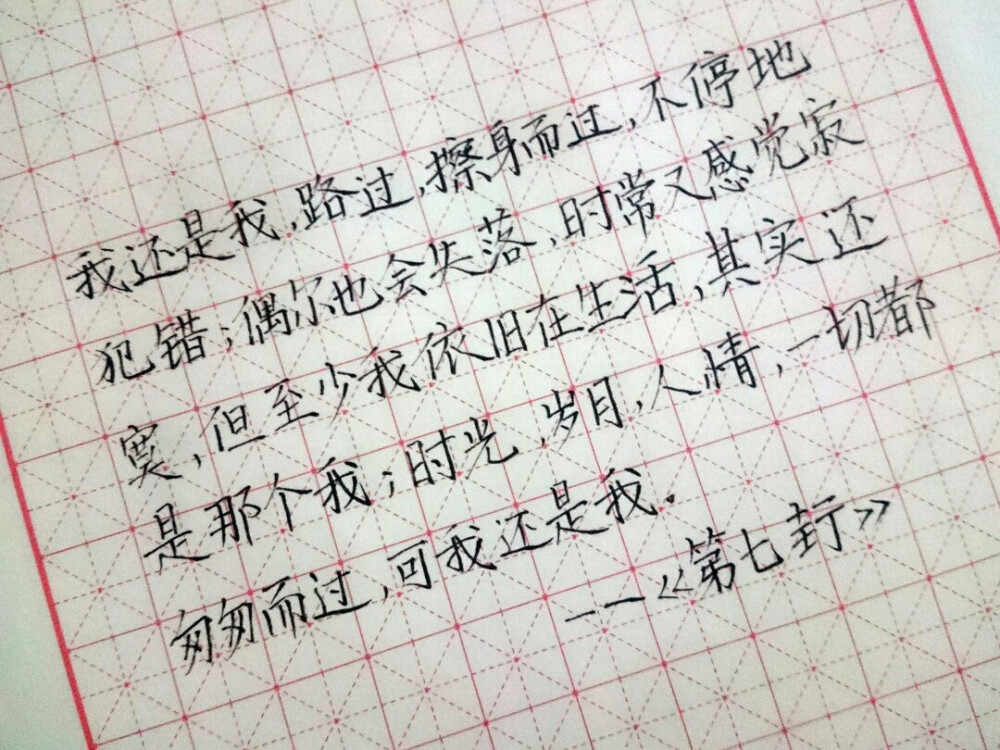 我还是我,路过,擦身而过,不停地
犯错;偶尔也会失落,时常又感觉寂
寞,但至少我依旧在生活,其实还
是那个我;时光,岁月,人情,一切都
匆匆而过,可我还是我.
——《第七封》